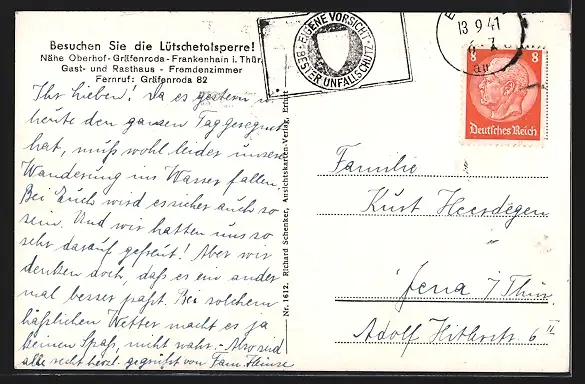 Besuchen Sie die Lütschetalsperre!
Nähe Oberhof-Gräfenroda-Frankenhain i. Thür.
Gast- und Rasthaus - Fremdenzimmer
Fernruf: Gräfenroda 82
Ihr Lieben! Da es gestern u.
heute den ganzen Tag geregnet
hat, muß wohl leider unsere
Wanderung ins Wasser fallen.
Bei Euch wird es sicher auch so
sein. Und wir hatten uns so
sehr darauf gefreut! Aber wir
denken doch, daß es ein ander
mal besser paßt. Bei solchem
häßlichen Wetter macht es ja
keinen Spaß, nicht wahr. - Also seid
alle recht herzl. gegrüßt von Fam.
Nr. 1612. Richard Schenker, Ansichtskarten-Verlag, Erfurt
EIGENE VORSICHT
BESTER UNFALLSCHUTZ
13.9.41
8 8
Deutsches Reich
Familie
Kurt Heerdegen
"
Jena / Thür.
Adolf Hitlerstr. 6 II